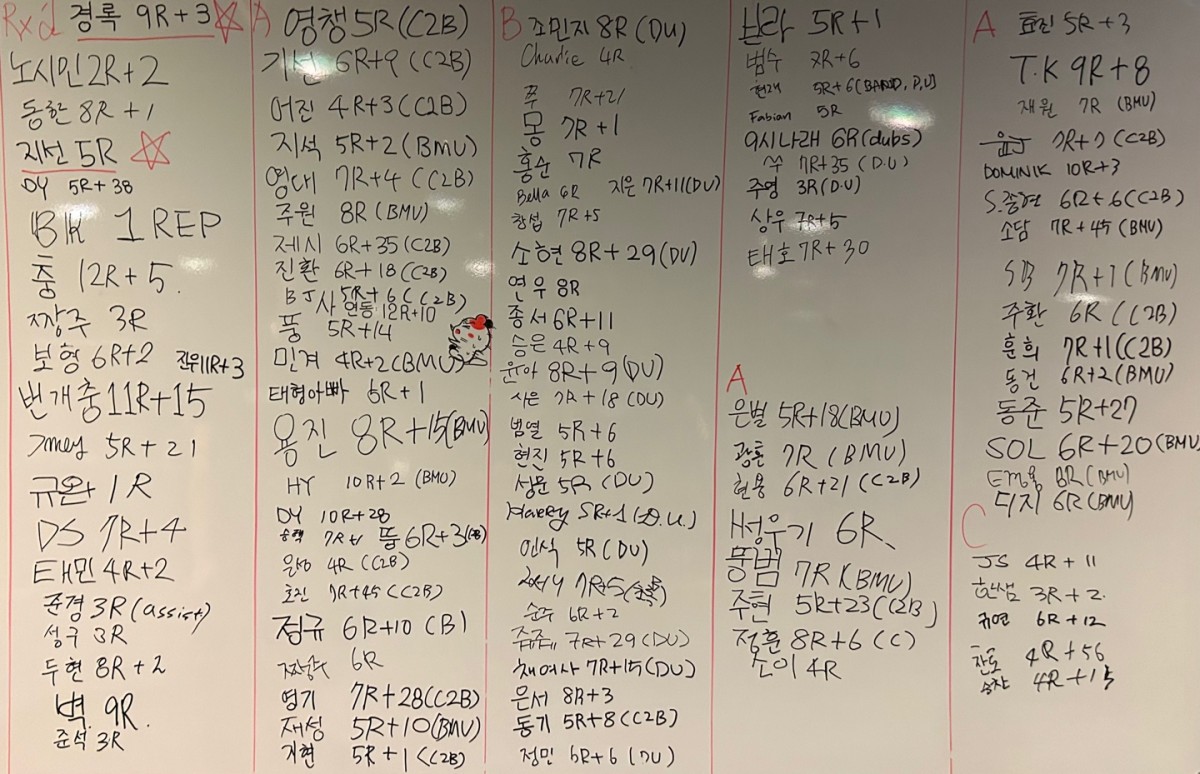 Rx'd 경록 9R+3
노시민 2R+2
동한 8R+1
지선 5R
DY 5R+38
BK 1 REP
충 12R+5
짱주 3R
보형 6R+2 진우 11R+3
번개충 11R+15
5R+21
규완 1R
DS 7R+4
태민 4R+2
준경 3R(assist)
성구 3R
두현 8R+2
벽 9R
준석 3R
A 영챙 5R(C2B)
기선 6R+9 (C2B)
어진 4R+3(C2B)
지석 5R+2(BMU)
영대 7R+4 (C2B)
주원 8R(BMU)
제시 6R+35(C2B)
진환 6R+18(C2B)
BJ 5R+6(C2B)
12R+10
풍 5R+14
민겨 4R+2(BMU)
태형아빠 6R+1
용진 8R+15(BMU)
HY 10R+2 (BMU)
DY 10R+28
뚱 6R+3
은성 4R (C2B)
호진 7R+45(C2B)
정규 6R+10 (B)
6R
영기 7R+28(C2B)
재성 5R+10(BMU)
지현 5R+1 (C2B)
B 조민지 8R(DU)
Charlie 4R
쭈 7R+21
몽 7R+1
홍순 7R
Bella 6R 지은 7R+11(DU)
창섭 7R+5
소현 8R+29(DU)
연우 8R
종서 6R+11
승은 4R+9
윤아 8R+9(DU)
7R+18 (DU)
범열 5R+6
현진 5R+6
성문 5R (DU)
Harry 5R+1(D.U.)
인식 5R(DU)
7R+5
순주 6R+2
쥼쥼 7R+29(DU)
채여사 7R+15(DU)
은서 8R+3
동기 5R+8(C2B)
정민 6R+6 (DU)
보라 5R+1
범수 7R+6
현재 5R+6(BAND, P.U)
Fabian 5R
9시나래 6R(dubs)
쑤 7R+35 (D.U)
주영 3R(D.U)
상우 7R+5
태호 7R+30
A
은별 5R+18(BMU)
광훈 7R (BMU)
현용 6R+21 (C2B)
H성우기 6R
뚱범 7R1(BMU)
주현 5R+23(C2B)
정훈 8R+6 (C)
소이 4R
A 효진 5R+3
T.K 9R+8
재원 7R (BMU)
윤규 7R+7 (C2B)
DOMINIK 10R+3
S.종현 6R+6(C2B)
소담 7R+45 (BMU)
SB 7R+1(BMU)
주환 6R (C2B)
훈희 7R+1(C2B)
동건 6R+2(BMU)
동준 5R+27
SOL 6R+20(BMU)
8R(BMU)
디지 6R(BMU)
C
JS 4R+11
한쌤 3R+2
귀연 6R+12
찬호 4R+56
승찬 4R+15